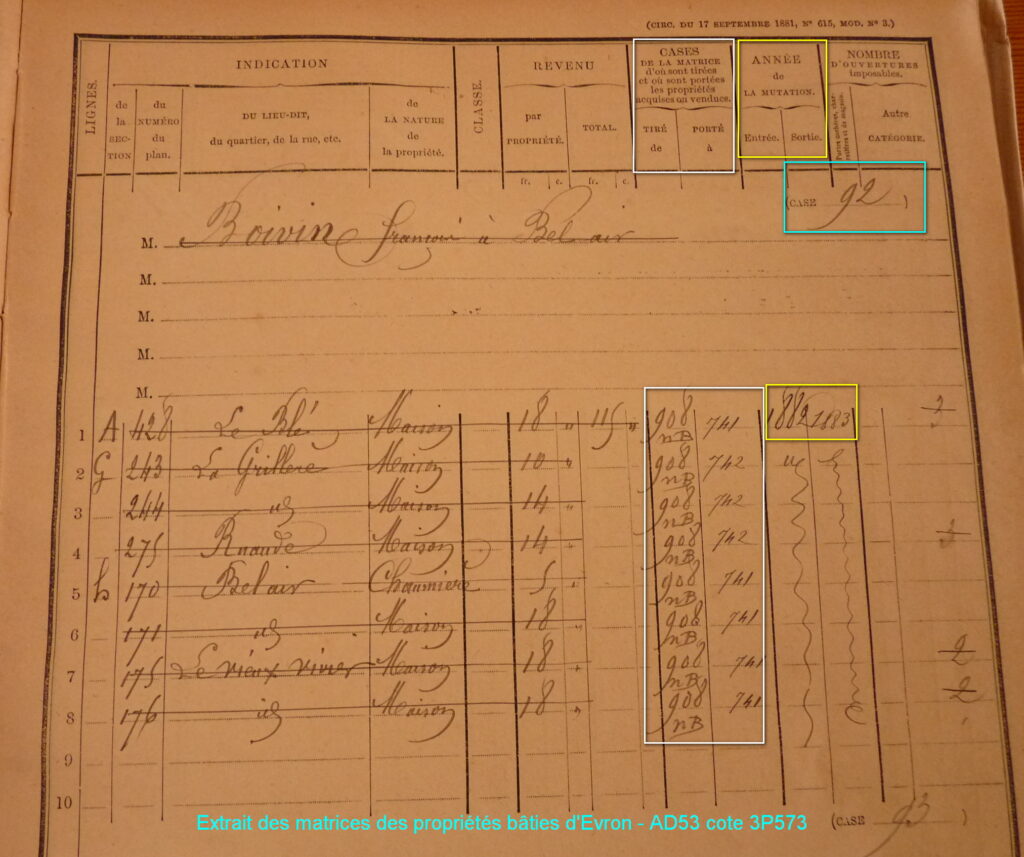 (CIRC. DU 17 SEPTEMBRE 1881, N° 615, MOD. N° 3.)
LIGNES.
INDICATION
de la SEC-TION
du NUMÉRO du plan.
DU LIEU-DIT, du quartier, de la rue, etc.
de LA NATURE de la propriété.
CLASSE.
REVENU
par PROPRIÉTÉ.
TOTAL.
CASES DE LA MATRICE d'où sont tirées et où sont portées les propriétés acquises ou vendues.
TIRÉ de
PORTÉ à
ANNÉE de LA MUTATION.
Entrée.
Sortie.
NOMBRE D'OUVERTURES imposables.
Autre CATÉGORIE.
fr. c. fr. c.
(CASE 92 )
M. Boivin françois à Bel air
M.
M.
M.
M.
1 A 428 Le Blé Maison 18 " 115 " 908 nB 741 1882 1883
2 G 243 La Grillere Maison 10 " 908 nB 742
3 244 id Maison 14 " 908 nB 742
4 275 Maison 14 " 908 nB 742
5 h 170 Bel air Chaumière 5 " 908 nB 741
6 171 id Maison 18 " 908 nB 741
7 175 Le vieux vivier Maison 18 " 908 nB 741 2
8 176 id Maison 18 " 908 nB 741 2
9
10
Extrait des matrices des propriétés bâties d'Evron - AD53 cote 3P573
(CASE 93 )